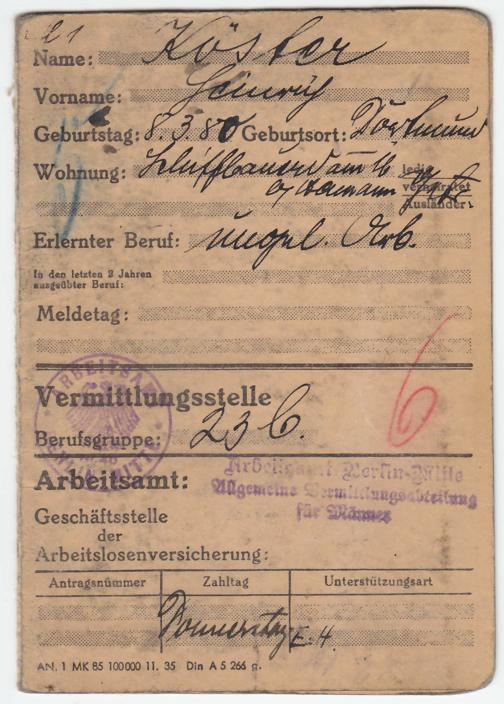 21
Name: Köster
Vorname: Heinrich
Geburtstag: 8.3.80 Geburtsort: Dortmund
Wohnung: Schiffbauerdamm 16 ledig
verheiratet
Ausländer:
Erlernter Beruf: ungel. Arb.
In den letzten 2 Jahren
ausgeübter Beruf:
Meldetag:
6
Vermittlungsstelle
Berufsgruppe: 23b.
ARBEITSAMT
BERLIN-MITTE
Arbeitsamt:
Arbeitsamt Berlin-Mitte
Allgemeine Vermittlungsabteilung
für Männer
Geschäftsstelle
der
Arbeitslosenversicherung:
Antragsnummer Zahltag Unterstützungsart
Donnerstag E. 4
AN. 1 MK 85 100000 11. 35 Din A 5 266 g.